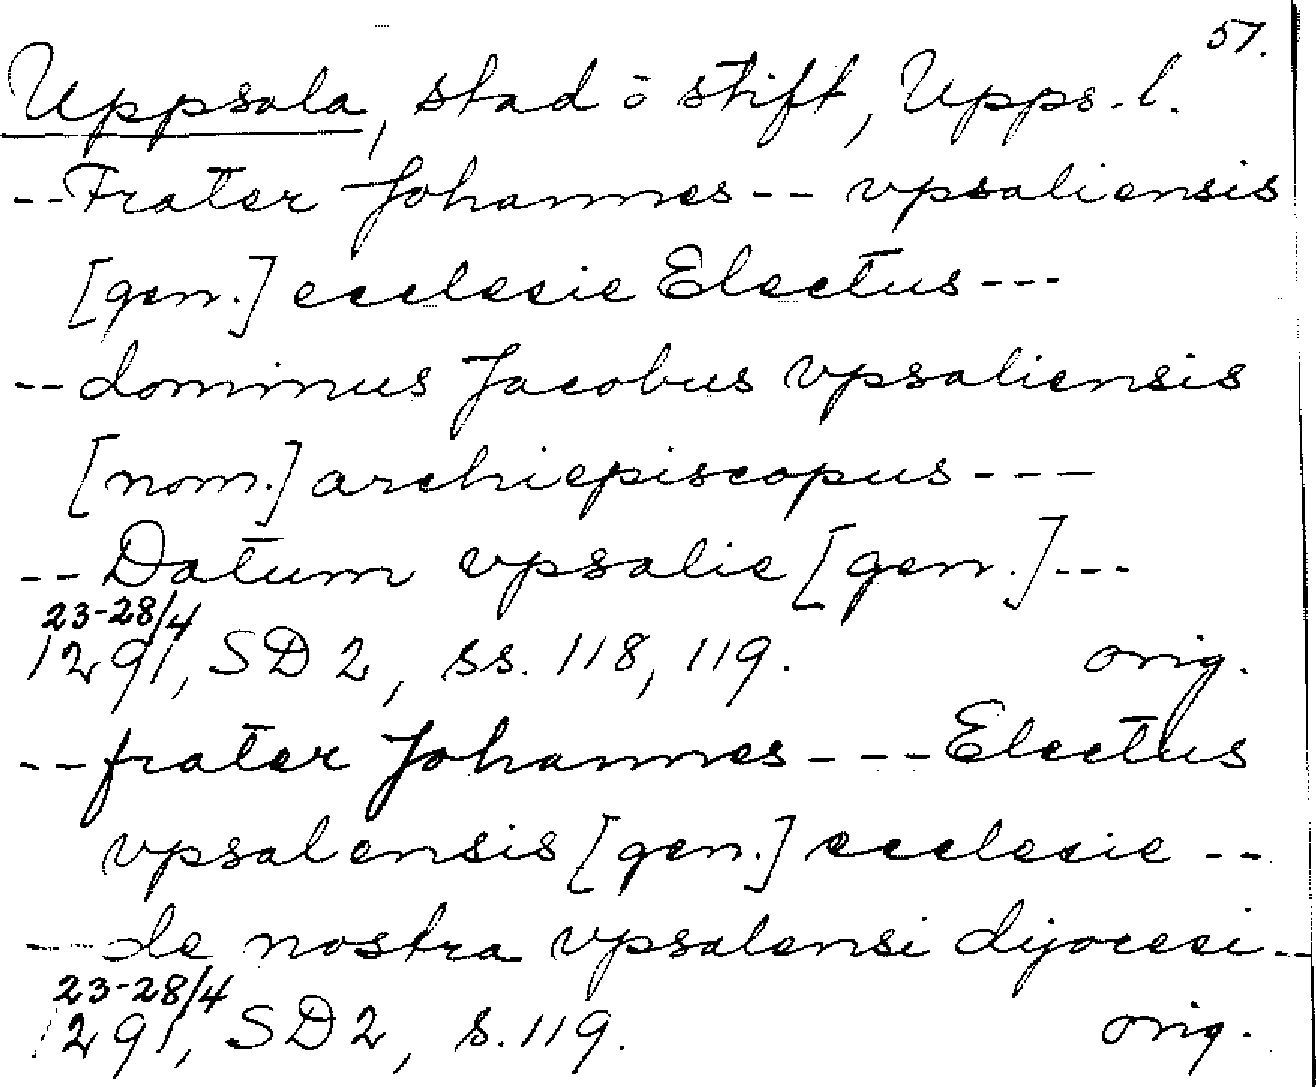 57.
Uppsala, stad o stift, Upps. l.
-- Frater Johannes -- vpsaliensis
[gen.] ecclesie Electus ---
-- dominus Jacobus vpsaliensis
[nom.] archiepiscopus ---
-- Datum vpsalie [gen.] ---
23-28/4
1291, SD 2, ss. 118, 119. orig.
-- frater Johannes --- Electus
vpsalensis [gen.] ecclesie --
-- de nostra vpsalensi dyocesi --
23-28/4
1291, SD 2, s. 119. orig.